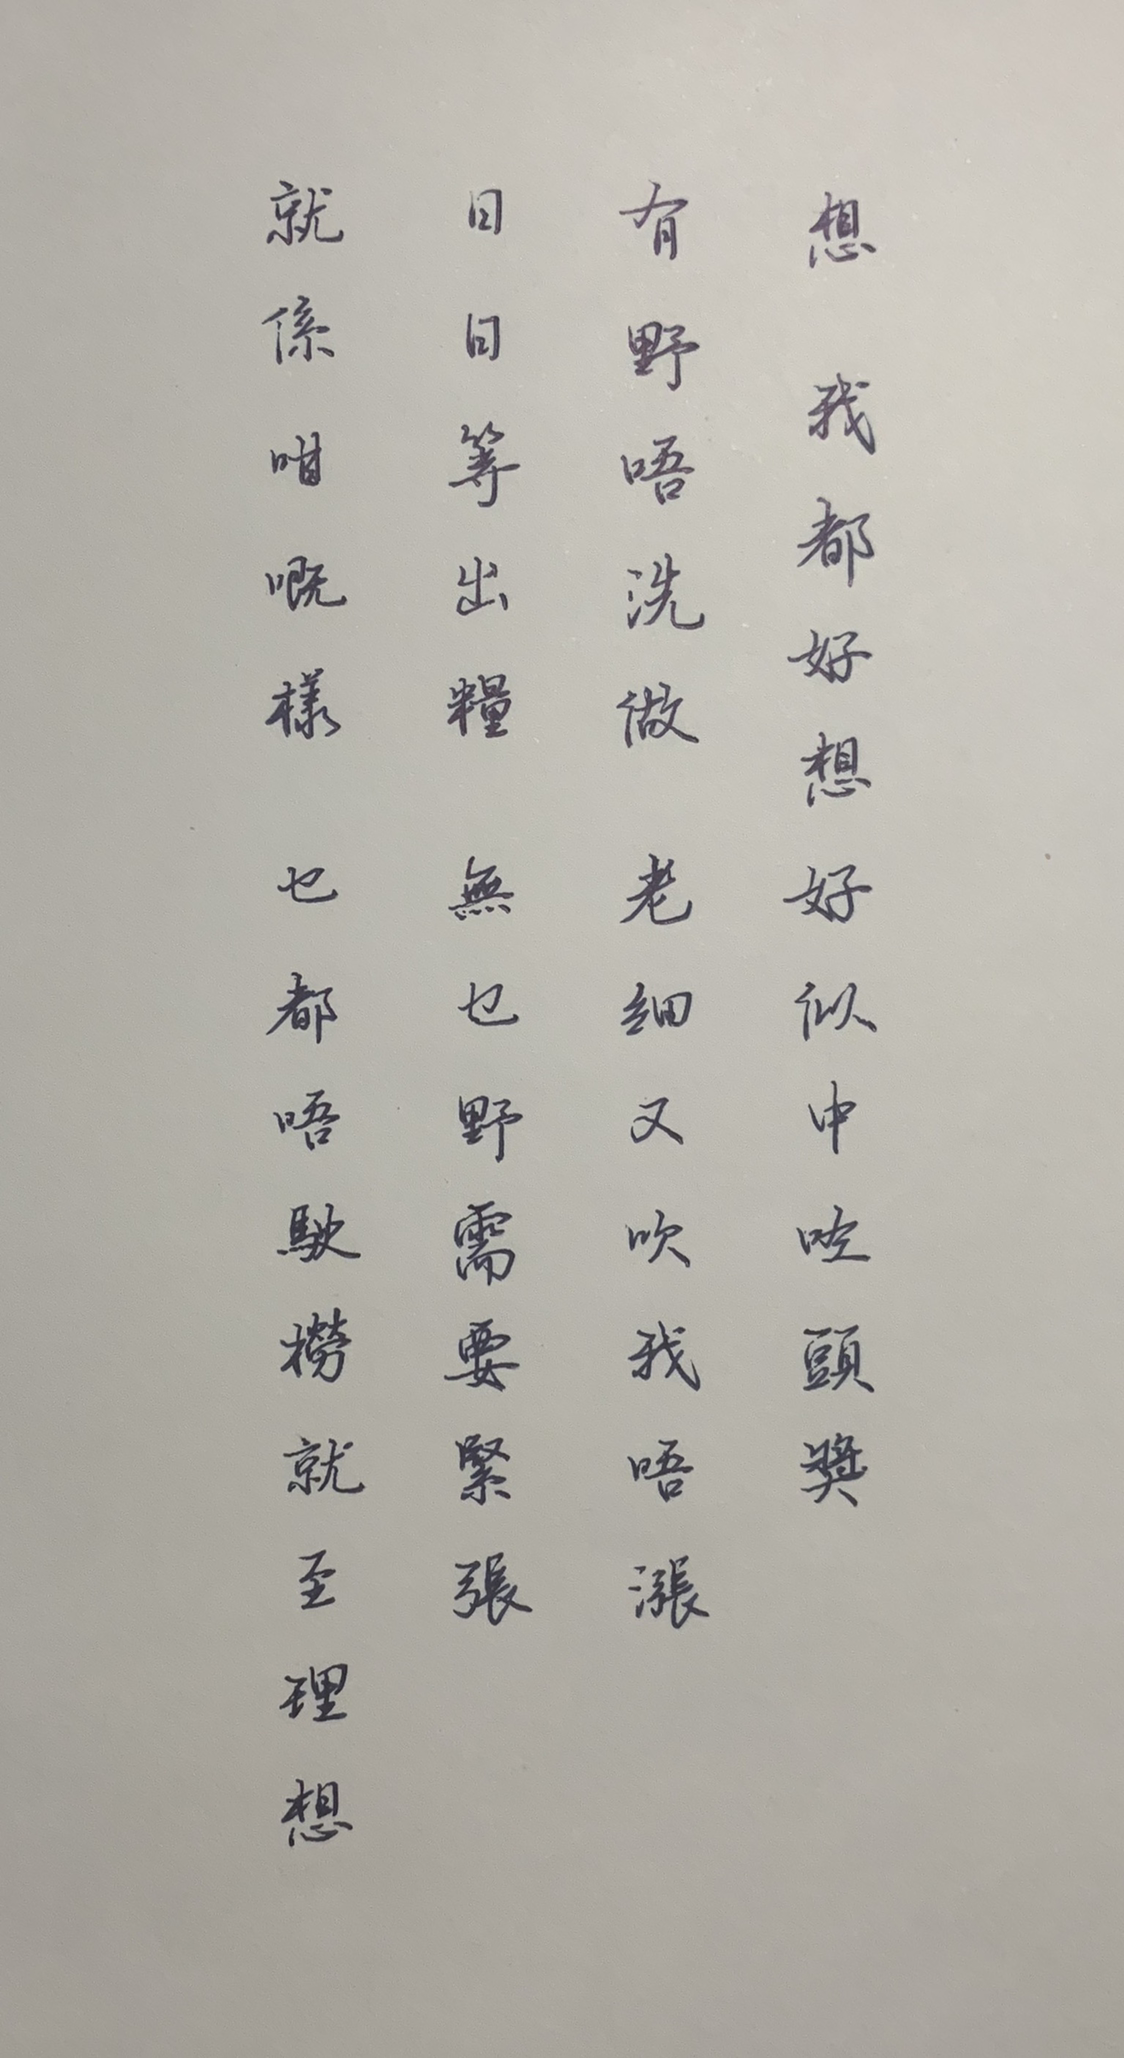 想 我都好想好似中咗頭獎
有野唔洗做 老細又吹我唔漲
日日等出糧 無乜野需要緊張
就係咁嘅樣 乜都唔駛撈就至理想